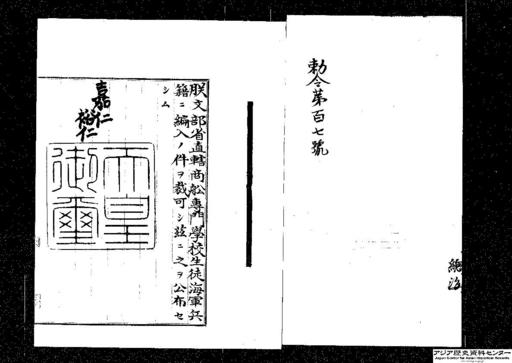 勅令第百七號
朕文部省直轄商船專門學校生徒海軍兵
籍ニ編入ノ件ヲ裁可シ茲ニ之ヲ公布セ
シム
嘉仁
裕仁
天皇
御璽
アジア歴史資料センター
Japan Center for Asian Historical Records